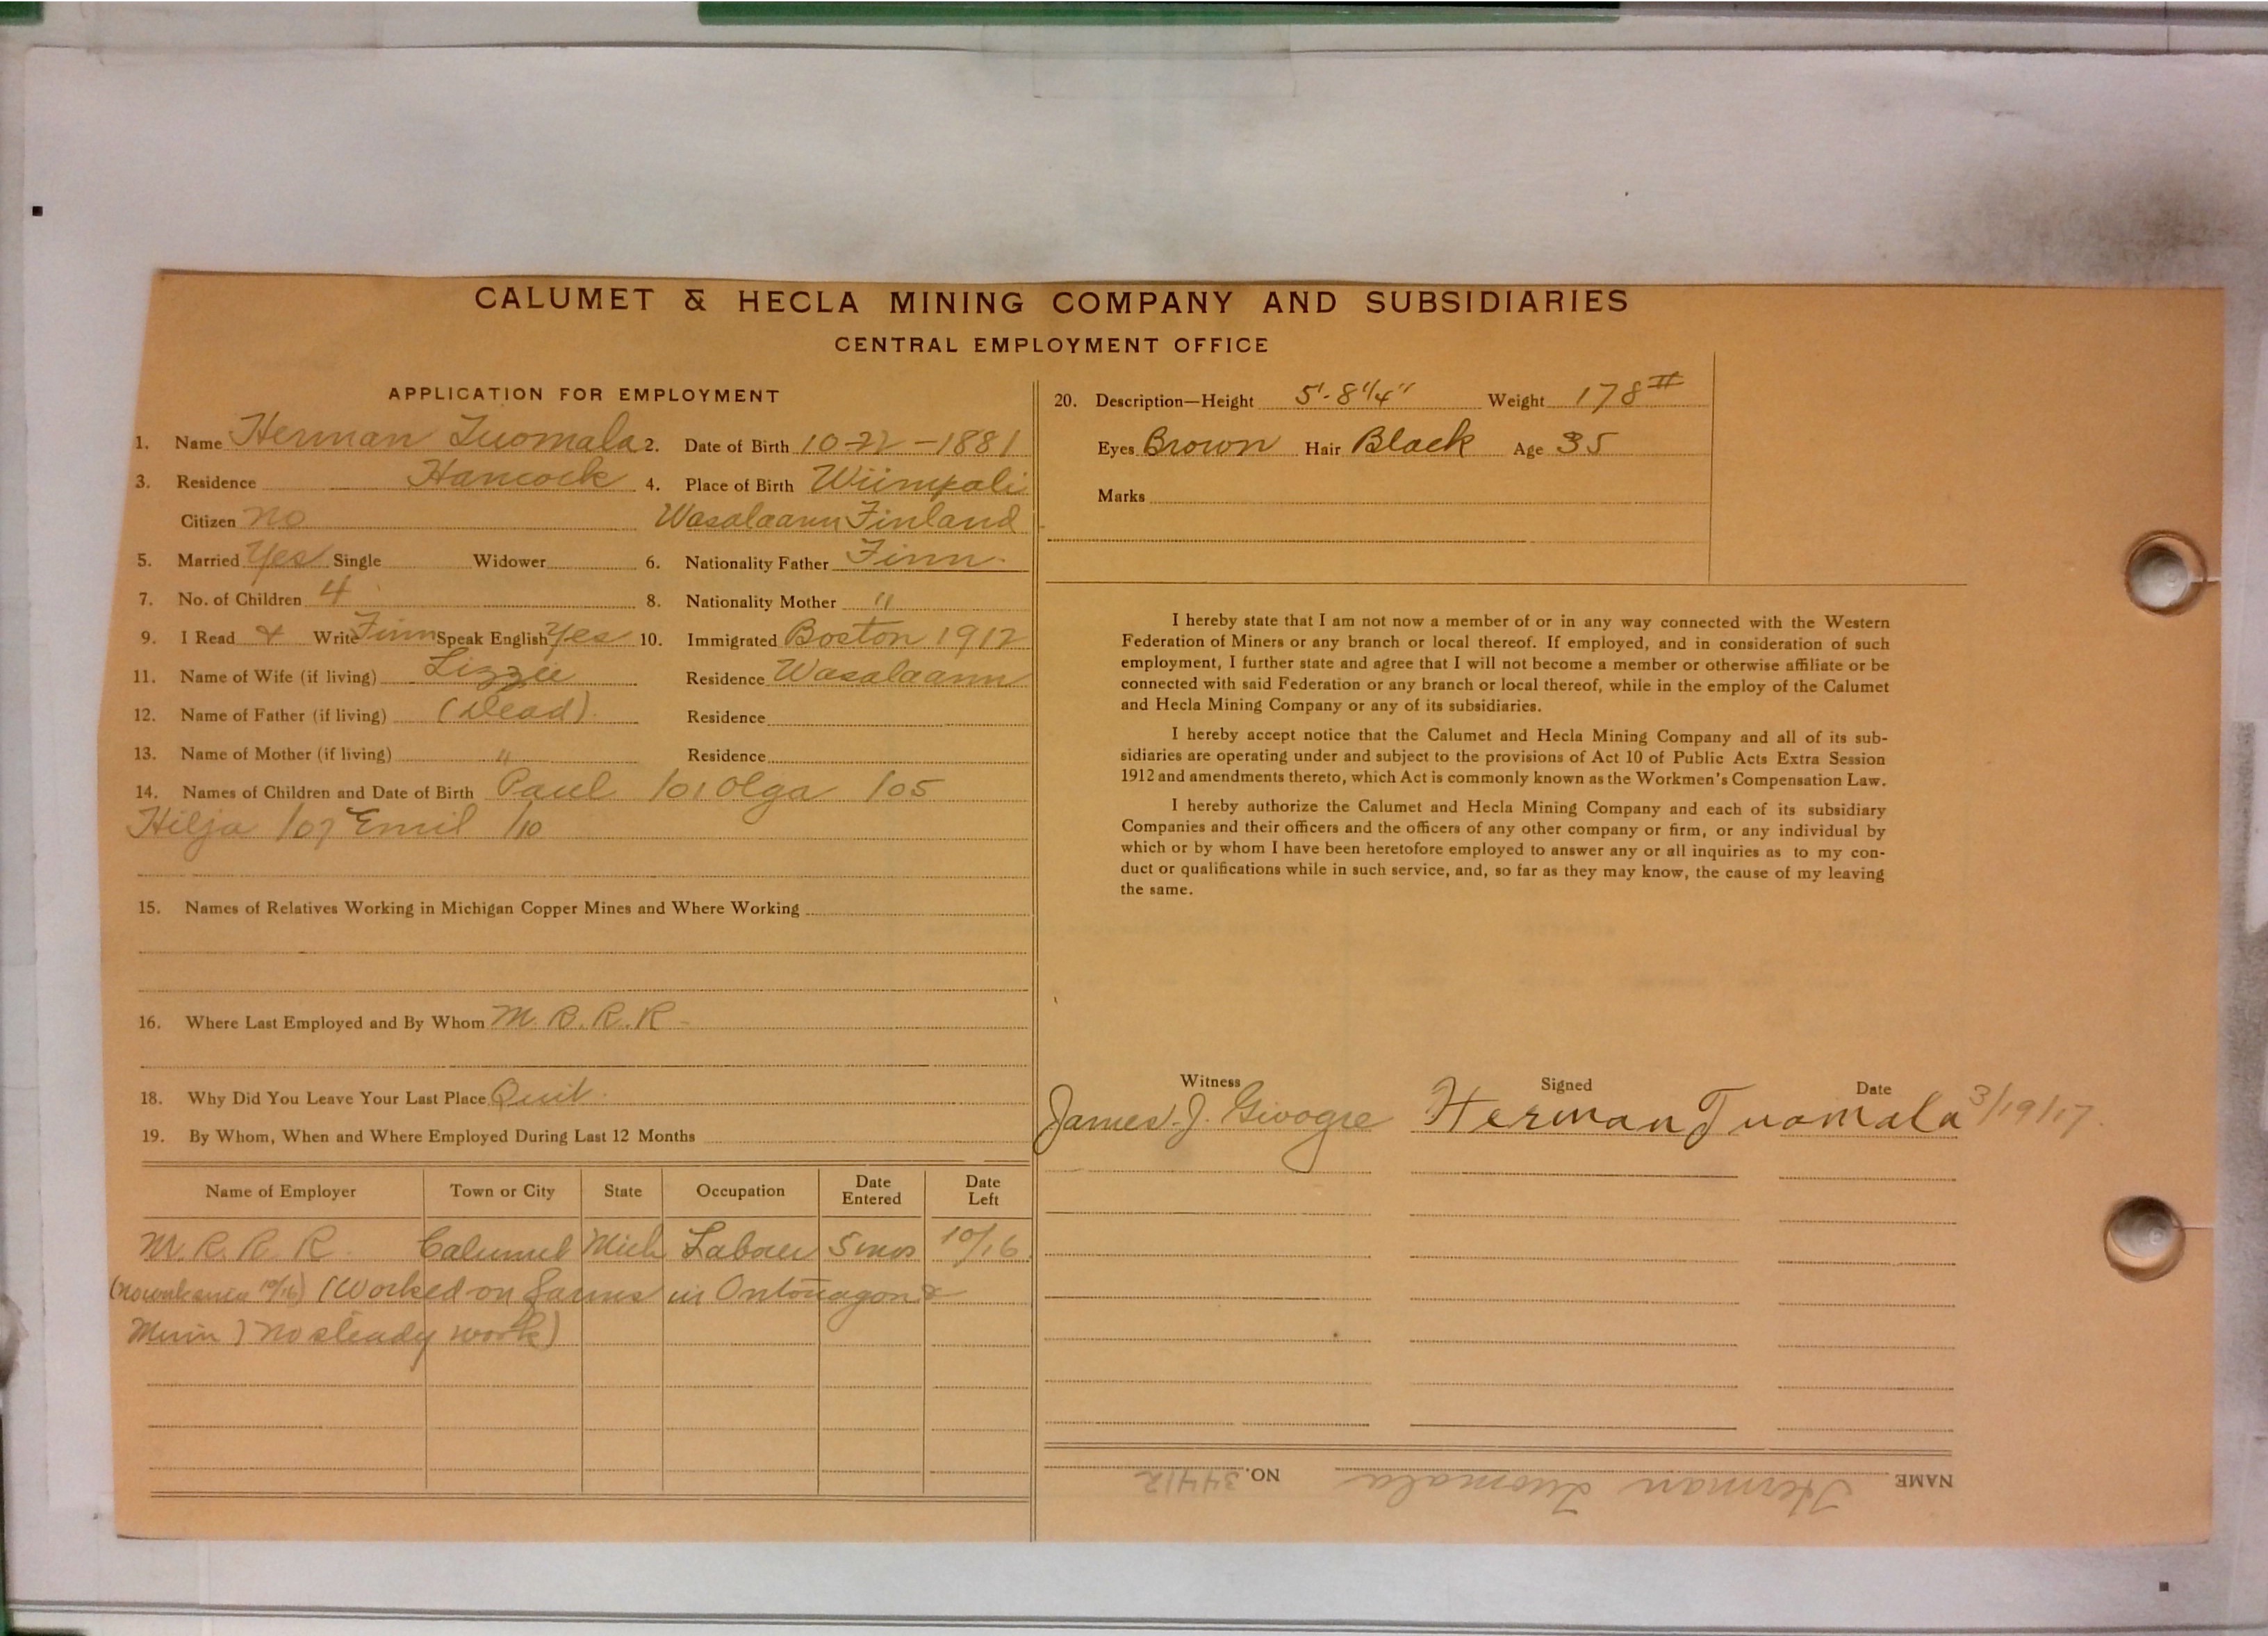 CALUMET & HECLA MINING COMPANY AND SUBSIDIARIES
CENTRAL EMPLOYMENT OFFICE
APPLICATION FOR EMPLOYMENT
1. Name Herman Tuomala 2. Date of Birth 10-22-1881
3. Residence Hancock 4. Place of Birth Wiimpali
Citizen no Wasalaann Finland
5. Married Yes Single Widower 6. Nationality Father Finn
7. No. of Children 4 8. Nationality Mother "
9. I Read & Write Finn Speak English Yes 10. Immigrated Boston 1912
11. Name of Wife (if living) Lizzie Residence Wasalaann
12. Name of Father (if living) (Dead) Residence
13. Name of Mother (if living) " Residence
14. Names of Children and Date of Birth Paul /01 Olga /05
Hilja /07 Emil /10
15. Names of Relatives Working in Michigan Copper Mines and Where Working
16. Where Last Employed and By Whom M. R. R. R
18. Why Did You Leave Your Last Place Quit.
19. By Whom, When and Where Employed During Last 12 Months
Name of Employer Town or City State Occupation Date Entered Date Left
M. R. R. R. Calumet Mich Labour 5 mos 10/16
10/16) (Worked on farms in Ontonagon &
Minn) No steady work)
20. Description—Height 5'-8 1/4" Weight 178#
Eyes Brown Hair Black Age 35
Marks
I hereby state that I am not now a member of or in any way connected with the Western
Federation of Miners or any branch or local thereof. If employed, and in consideration of such
employment, I further state and agree that I will not become a member or otherwise affiliate or be
connected with said Federation or any branch or local thereof, while in the employ of the Calumet
and Hecla Mining Company or any of its subsidiaries.
I hereby accept notice that the Calumet and Hecla Mining Company and all of its sub-
sidiaries are operating under and subject to the provisions of Act 10 of Public Acts Extra Session
1912 and amendments thereto, which Act is commonly known as the Workmen's Compensation Law.
I hereby authorize the Calumet and Hecla Mining Company and each of its subsidiary
Companies and their officers and the officers of any other company or firm, or any individual by
which or by whom I have been heretofore employed to answer any or all inquiries as to my con-
duct or qualifications while in such service, and, so far as they may know, the cause of my leaving
the same.
Witness Signed Date
James. J. Herman Tuomala 3/19/17.
NAME Herman Tuomala NO. 34412